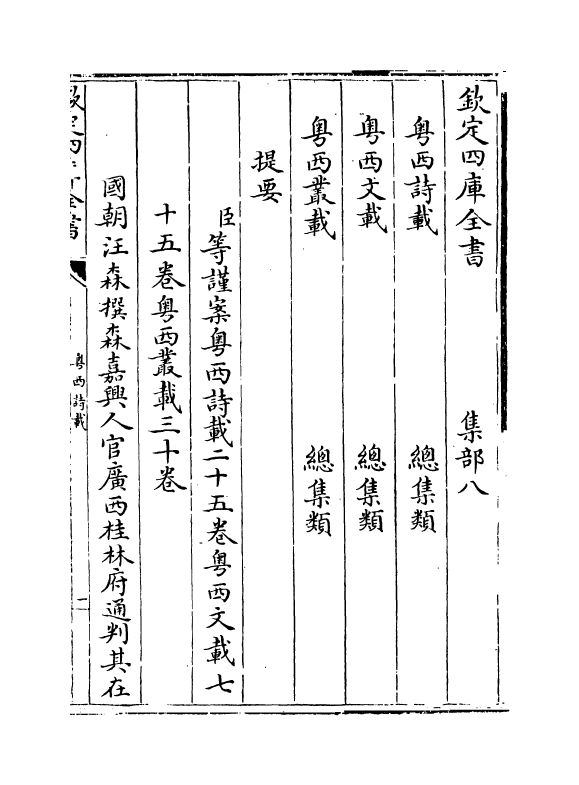 欽定四庫全書　集部八
粤西詩載　總集類
粤西文載　總集類
粤西叢載　總集類
提要
臣等謹案粤西詩載二十五卷粤西文載七
十五卷粤西叢載三十卷
國朝汪森撰森嘉興人官廣西桂林府通判其在
欽定四庫全書
粤西詩載